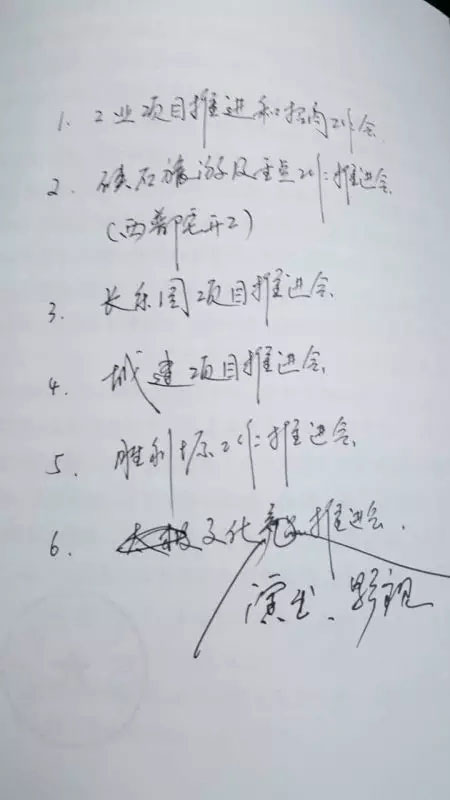 1. 工业项目推进和招商工作会
2. 硖石旅游及重点工作推进会
(西部宅开工)
3. 长乐园项目推进会
4. 城建项目推进会
5. 胜利塬工作推进会
6. 文化 推进会.
演出、影视